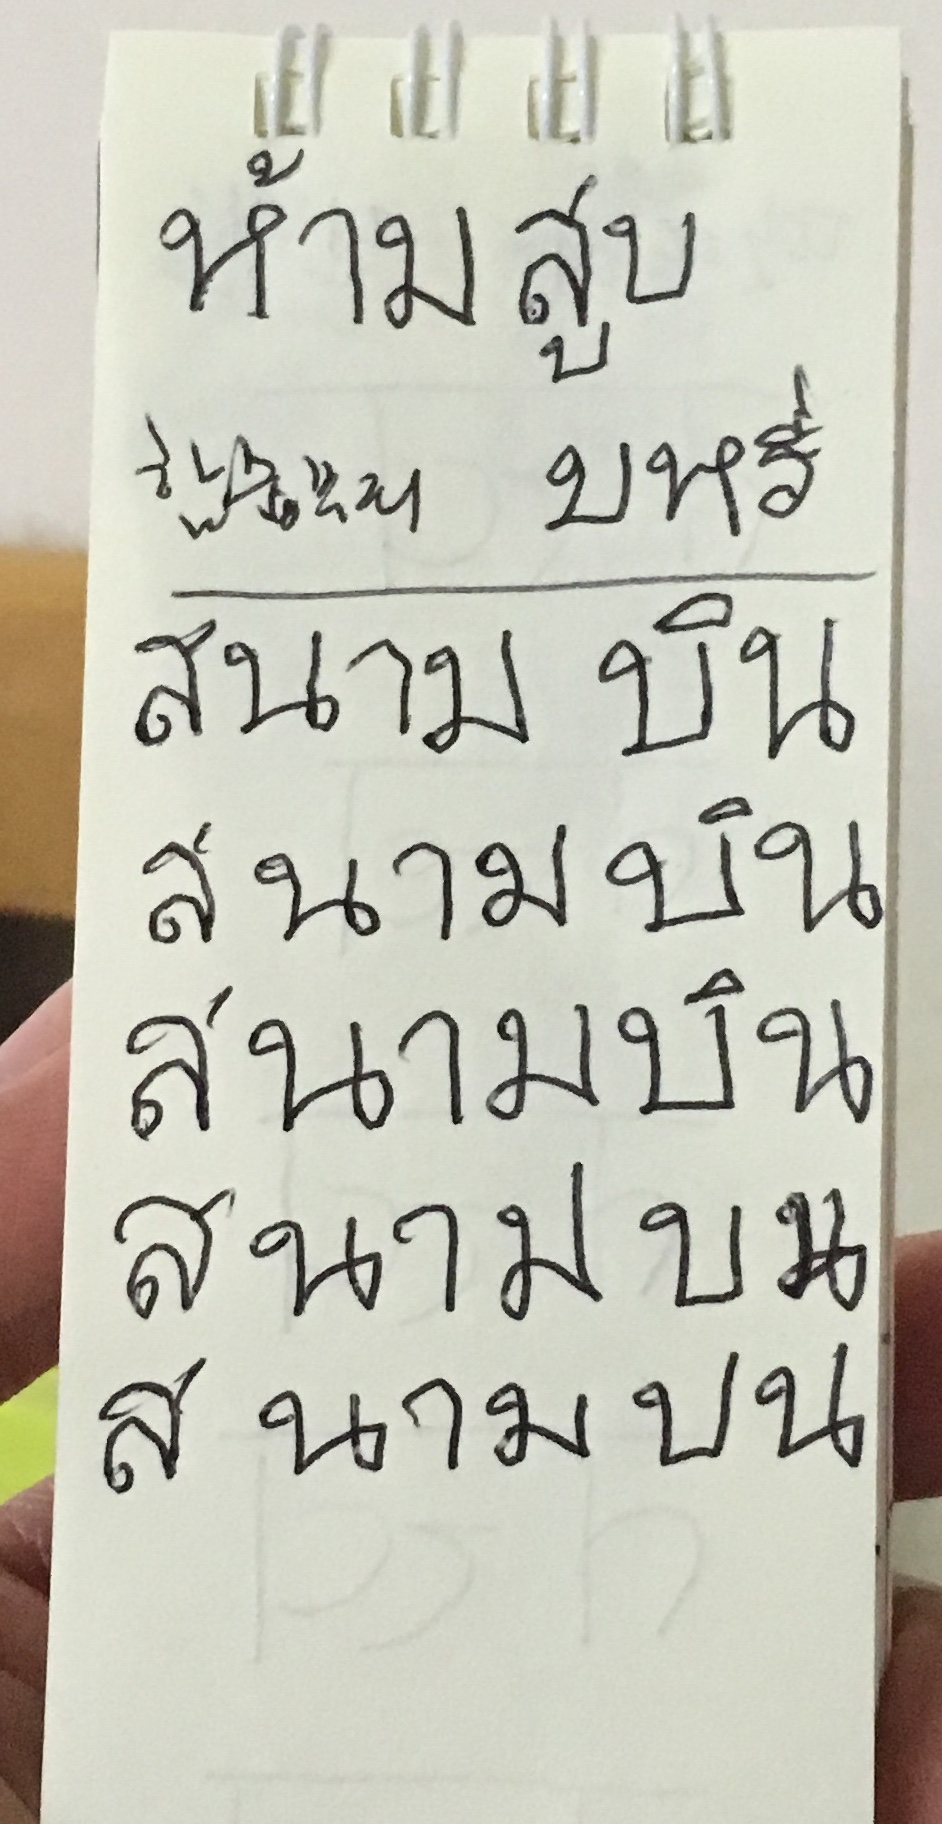 ห้าม สูบ
บหรี่
สนาม บิน
สนาม บิน
สนามบิน
สนาม บน
สนาม บน